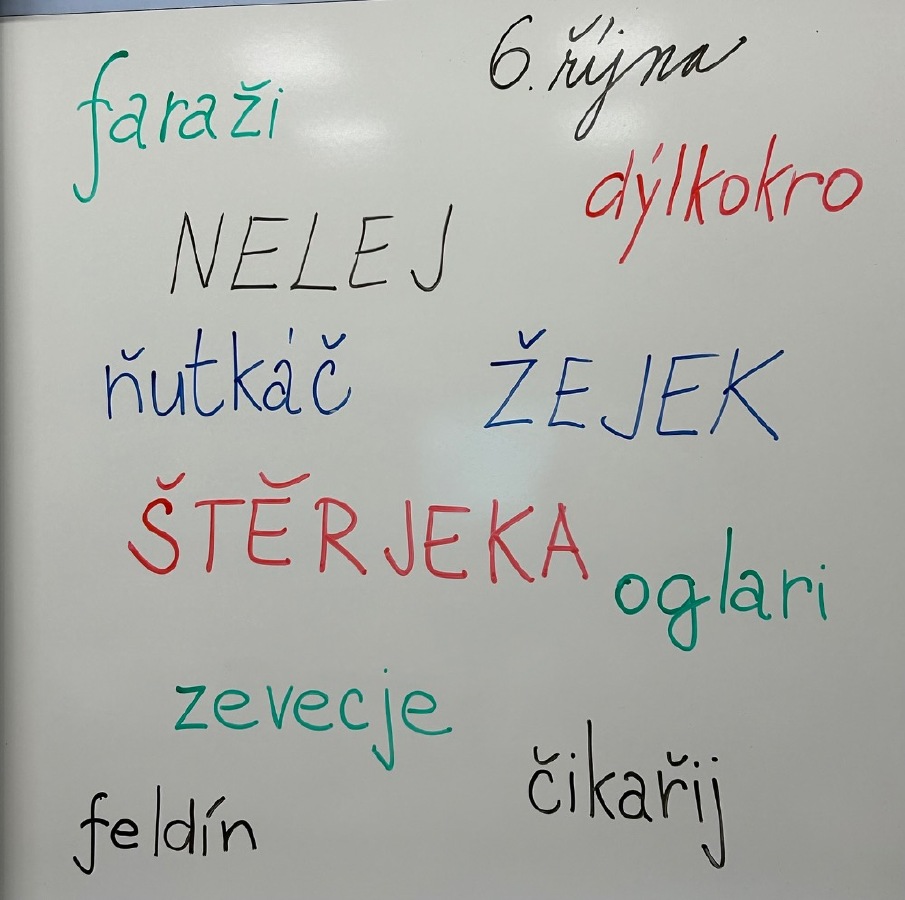 6. října
faraži
dýlkokro
NELEJ
ňutkáč
ŽEJEK
ŠTĚRJEKA
oglari
zevecje
čikařij
feldín